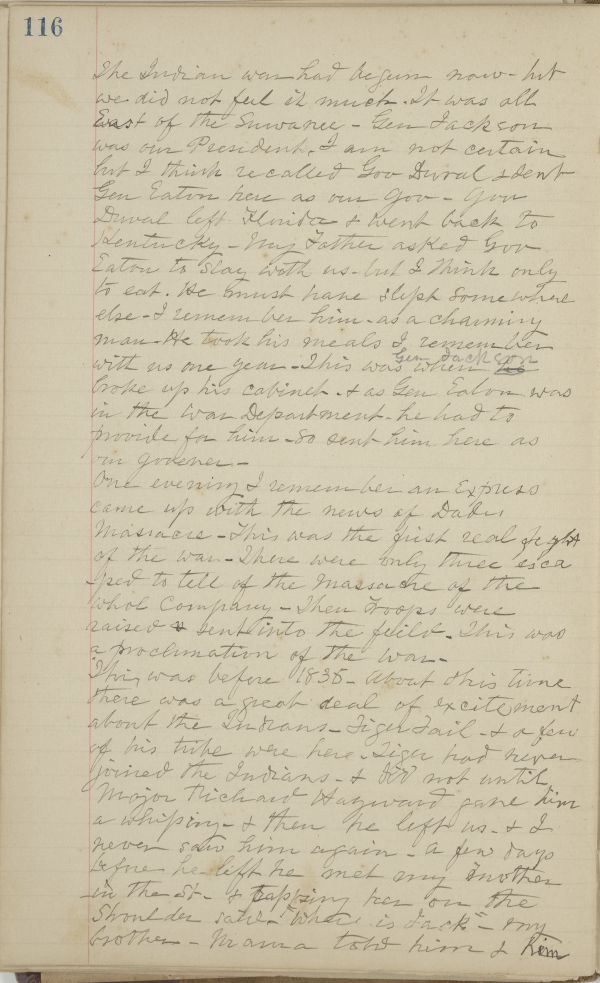 116
The Indian war had begun now - but
we did not feel it much. It was all
East of the Suwanee - Gen Jackson
was our President. I am not certain
but I think recalled Gov Duval & sent
Gen Eaton here as our Gov - Gov
Duval left Florida & went back to
Kentucky - My Father asked Gov
Eaton to stay with us - but I think only
to eat. He must have slept somewhere
else - I remember him - as a charming
man - He took his meals I remember
with us one year - This was when he
Gen Jackson
broke up his cabinet. & as Gen Eaton was
in the War Department - he had to
provide for him - So sent him here as
our govener -
One evening I remember an Express
came up with the news of Dades
Massacre - This was the first real fight
of the war - There were only three esca
ped to tell of the Massacre of the
whol Company - Then Troops were
raised & sent into the feild. This was
a proclimation of the war -
This was before 1835 - About this time
there was a great deal of excitement
about the Indians - Tiger Tail - & a few
of his tribe were here. Tiger had never
joined the Indians - & did not until
Major Richard Hayward gave him
a whiping - & then he left us - & I
never saw him again - a few days
before he left he met my mother
in the St - & tapping her on the
Shoulder said - "Where is Jack" - my
brother - Mama told him &